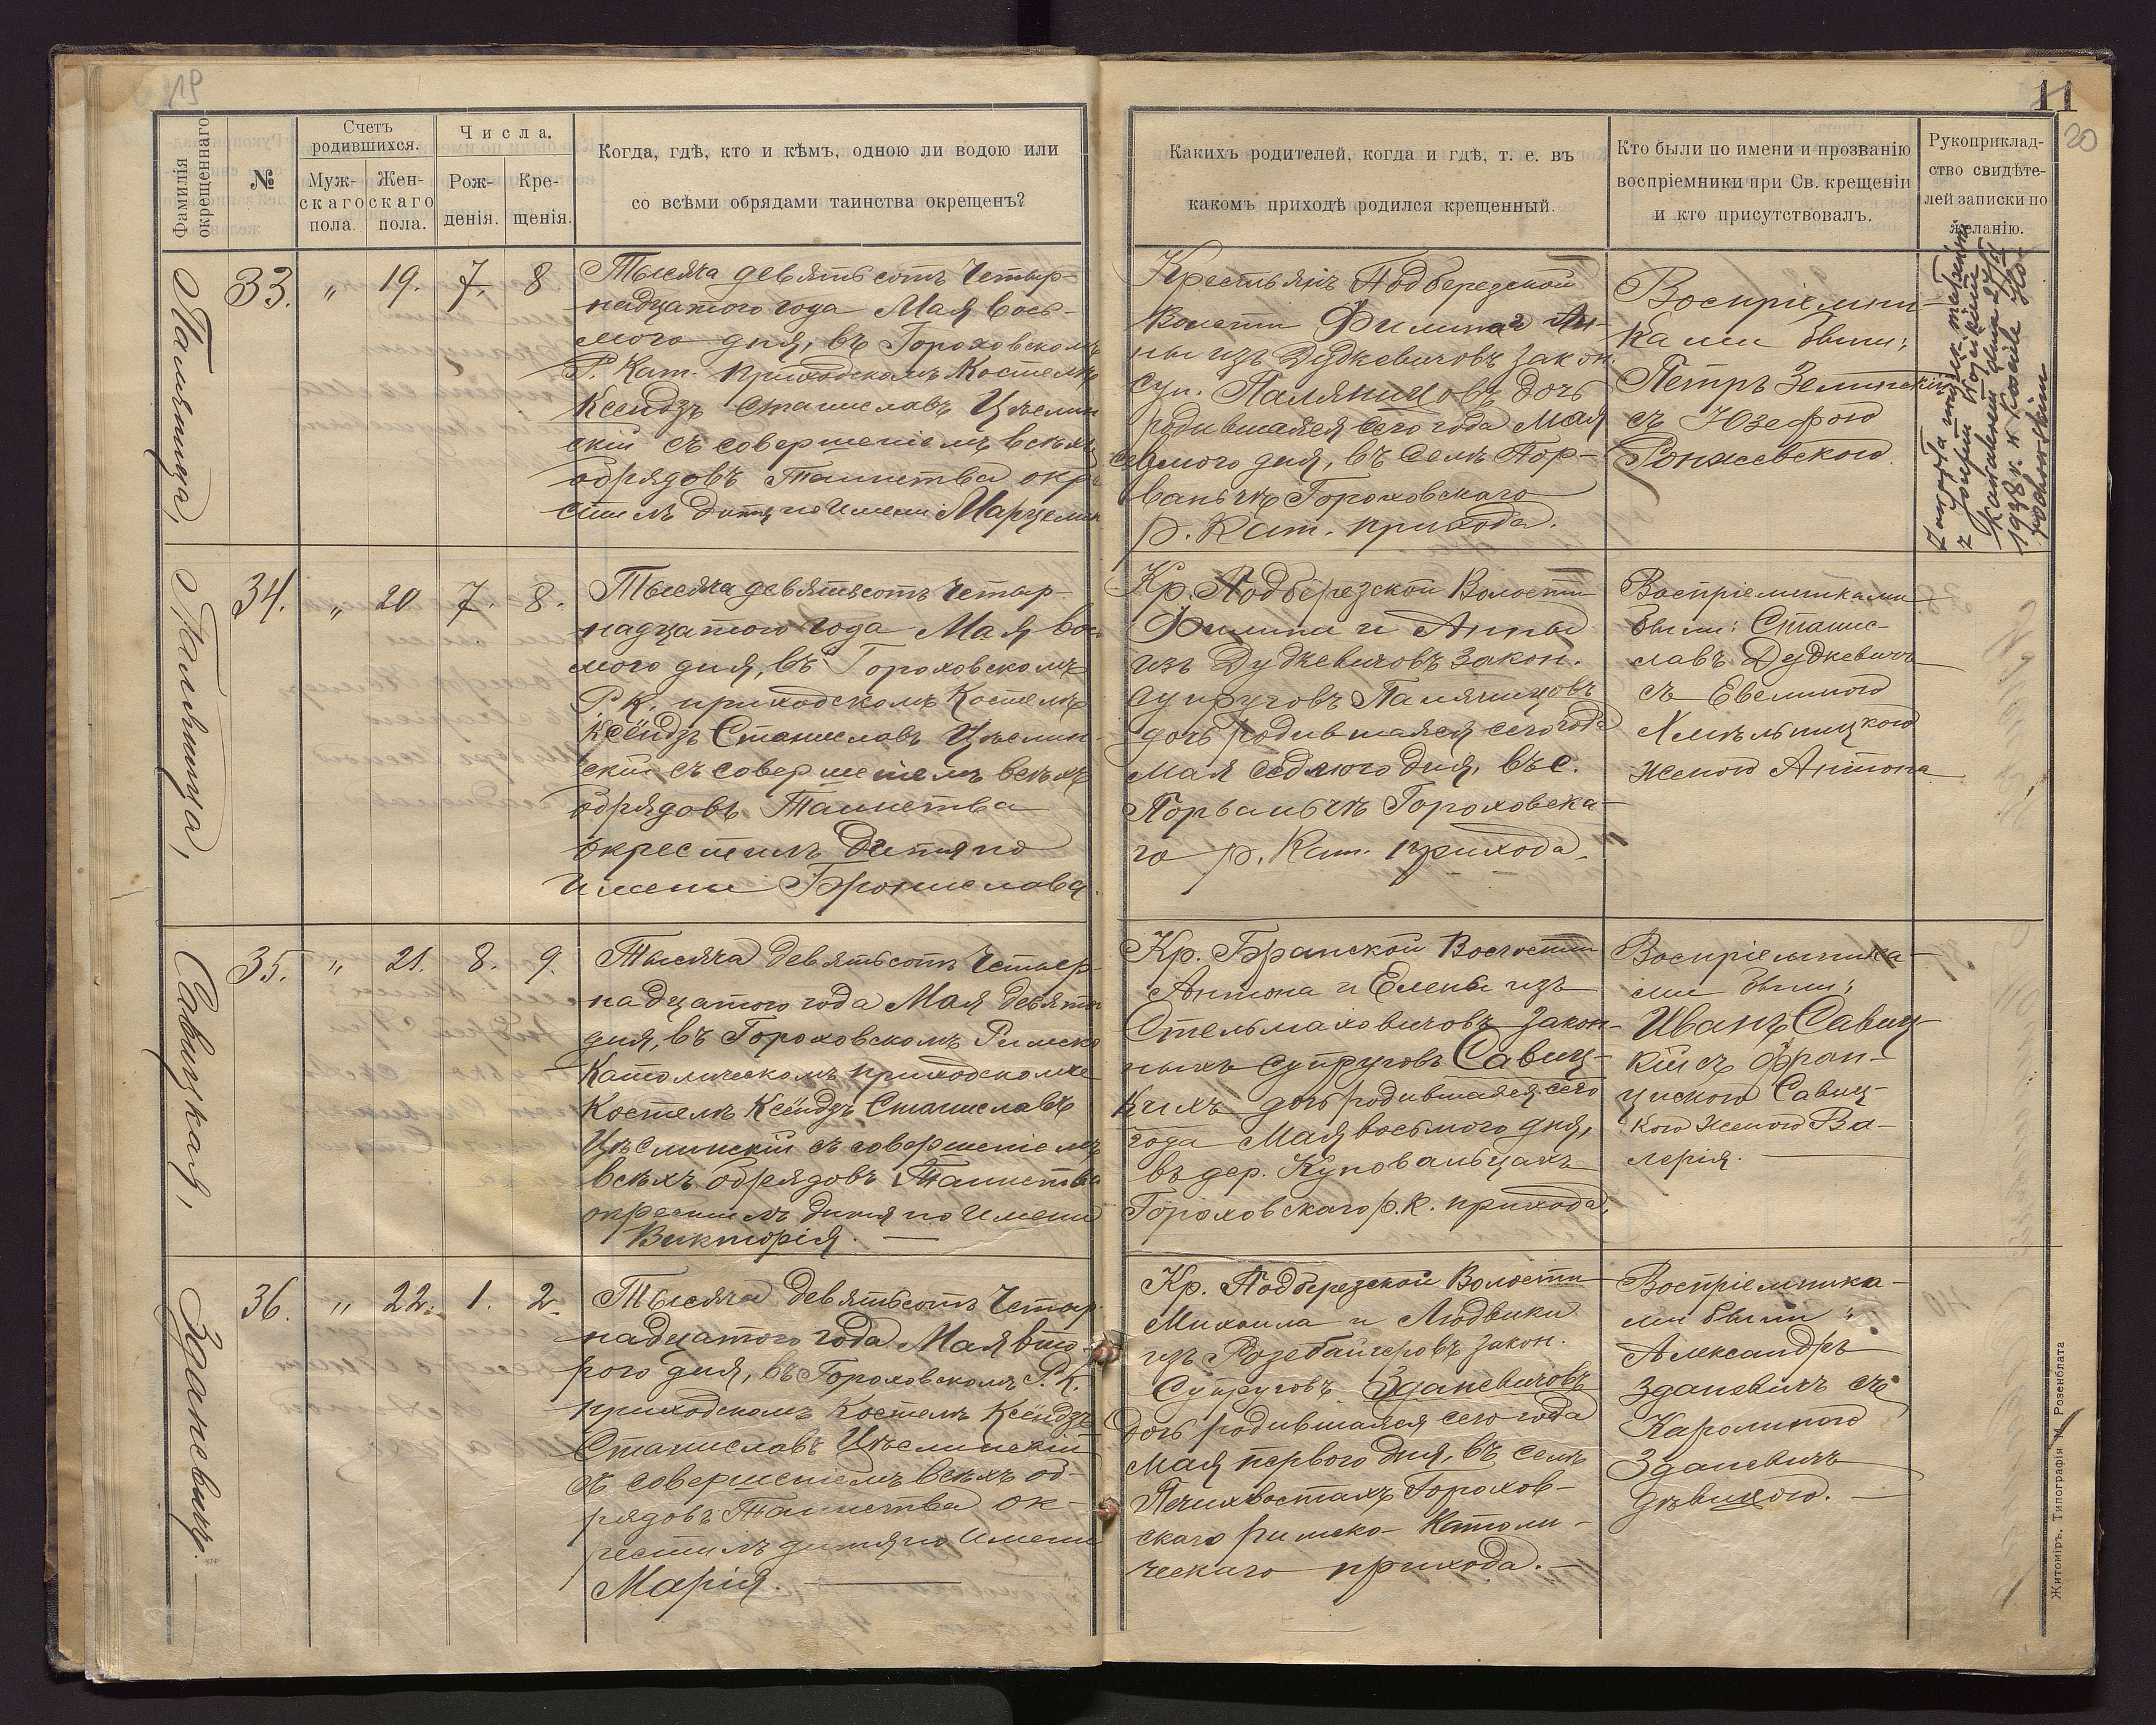 19
11
20
Фамилія окрещеннаго
№
Счетъ родившихся.
Муж-скаго пола.
Жен-скаго пола.
Числа.
Рож-денія.
Кре-щенія.
Когда, гдѣ, кто и кѣмъ, одною ли водою или
со всѣми обрядами таинства окрещенъ?
Какихъ родителей, когда и гдѣ, т. е. въ
какомъ приходѣ родился крещенный.
Кто были по имени и прозванію
воспріемники при Св. крещеніи
и кто присутствовалъ.
Рукоприклад-
ство свидѣте-
лей записки по
желанію.
Паляница,
33. " 19. 7. 8
Тысяча девятьсотъ четыр-
надцатого года Мая вось-
мого дня, въ Гороховскомъ
Р. Кат. приходскомъ Костелѣ
Ксендзъ Станиславъ Цѣслин
скій съ совершеніемъ всѣхъ
обрядовъ Таинства окре
стилъ дитя по имени Марцелин
Крестьянъ Подберезской
Волости Филипа и Ан-
ны изъ Дудкевичовъ закон.
суп. Паляницовъ дочь
родившаяся сего года Мая
седмого дня, въ селѣ Пор-
ваньчѣ Гороховскаго
р. Кат. прихода.
Воспріемни-
ками были:
Петръ Зелинскій
съ Юзефою
1938 r. w Kościele
Паляница,
34. " 20 7. 8.
Тысяча девятьсотъ четыр-
надцатого года Мая вос
мого дня, въ Гороховскомъ
Р. К. приходскомъ Костелѣ
Ксендзъ Станиславъ Цѣслин-
скій съ совершеніемъ всѣхъ
обрядовъ Таинства
окрестилъ дитя по
имени Брониславa.
Кр. Подберезской Волости
Филипа и Анны
изъ Дудкевичовъ закон.
супруговъ Паляницовъ
дочь родившаяся сего года
Мая седмого дня, въ с.
Порваньчѣ Гороховска-
го р. Кат. прихода.
Воспріемниками
были: Станис-
славъ Дудкевичъ
съ Евелиною
Хмѣльницкою
женою Антона
Савицкая,
35. " 21. 8. 9.
Тысяча девятьсотъ четыр-
надцатого года Мая девято
дня, въ Гороховскомъ Римско
Католическомъ приходскомъ
Костелѣ Ксендзъ Станиславъ
Цѣслинскій съ совершеніемъ
всѣхъ обрядовъ Таинства
окрестилъ дитя по имени
Викторія.
Кр. Бранской Волости
Антона и Елены изъ
Стельмаховичовъ закон-
ныхъ супруговъ Савиц-
кихъ дочь родившаяся сего
года Мая восьмого дня,
въ дер. Куповальцахъ
Гороховскаго р. К. прихода.
Воспріемника-
ми были:
Иванъ Савиц-
кій съ Фран-
циcкою Савиц-
кою женою Ва-
лерія.
Зданевичъ.
36. " 22. 1. 2.
Тысяча девятьсотъ четыр
надцатого года Мая вто-
рого дня, въ Гороховскомъ Р. К.
приходскомъ Костелѣ Ксендзъ
Станиславъ Цѣслинскій
съ совершеніемъ всѣхъ об-
рядовъ Таинства ок-
рестилъ дитя по имени
Марія.
Кр. Подберезской Волости
Михаила и Людвики
изъ Розебайгеровъ закон.
Супруговъ Зданевичовъ
дочь родившаяся сего года
Мая первого дня, въ селѣ
Печихвостахъ Горохов-
скаго римско-Католи-
ческаго прихода.
Воспріемника-
ми были:
Александръ
Зданевичъ съ
Каролиною
Зданевичъ
дѣвицою.
Житоміръ. Типографія М. Розенблата